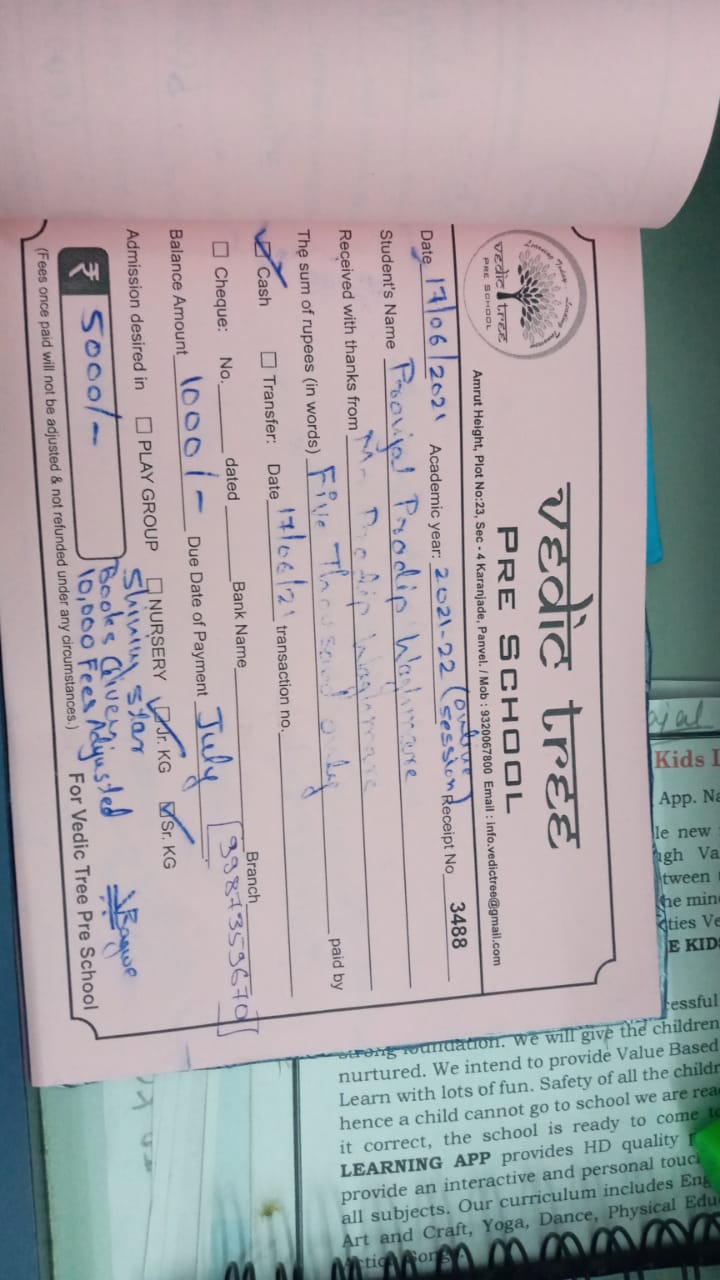 vedic tree
PRE SCHOOL
vedic tree
PRE SCHOOL
Amrut Height, Plot No:23, Sec - 4 Karanjade, Panvel. / Mob : 9320067800 Email : info.vedictree@gmail.com
Date 17/06/2021 Academic year: 2021-22 (online session) Receipt No 3488
Student's Name Pradip Waghmare
Received with thanks from Mr Pradip Waghmare
The sum of rupees (in words) Five Thousand only paid by
Cash Transfer: Date 17/06/21 transaction no.
Cheque: No. dated Bank Name Branch
Balance Amount 1000/- Due Date of Payment July 9987359670
Admission desired in PLAY GROUP NURSERY Jr. KG Sr. KG
Shining star
₹ 5000/- Books Given
10,000 Fees Adjusted
(Fees once paid will not be adjusted & not refunded under any circumstances.) For Vedic Tree Pre School
Kids
App.
le new
tween
E KID
strong foundation. We will give the children
nurtured. We intend to provide Value Based
Learn with lots of fun. Safety of all the
hence a child cannot go to school we are
it correct, the school is ready to come
LEARNING APP provides HD quality
provide an interactive and personal
all subjects. Our curriculum includes
Art and Craft, Yoga, Dance, Physical